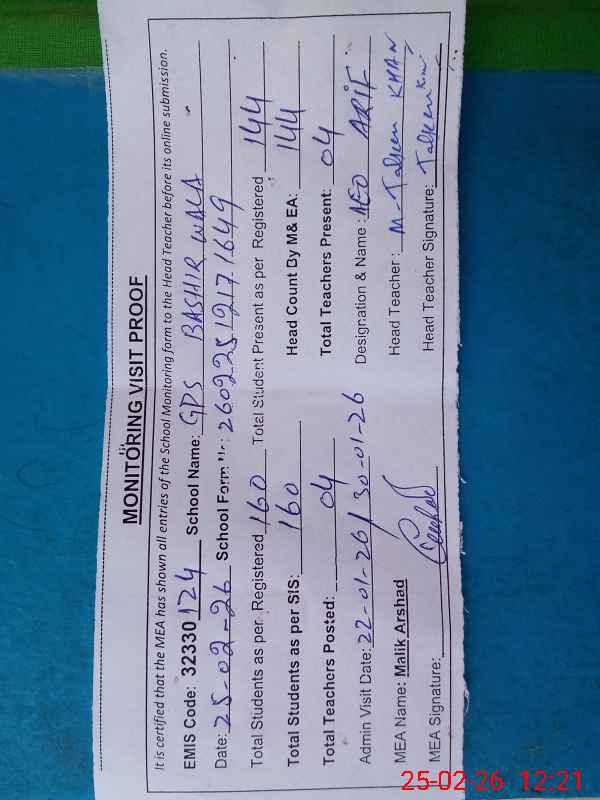 MONITORING VISIT PROOF
It is certified that the MEA has shown all entries of the School Monitoring form to the Head Teacher before its online submission.
EMIS Code: 32330124 School Name: GPS BASHIR WALA
Date: 25-02-26 School Form 26022512171649
Total Students as per Registered 160 Total Student Present as per Registered 144
Total Students as per SIS: 160 Head Count By M& EA: 144
Total Teachers Posted: 04 Total Teachers Present: 04
Admin Visit Date: 22-01-26/30-01-26 Designation & Name: AEO ARIF
MEA Name: Malik Arshad Head Teacher: M-Tabseen KHAN
MEA Signature: Head Teacher Signature:
25-02-26 12:21